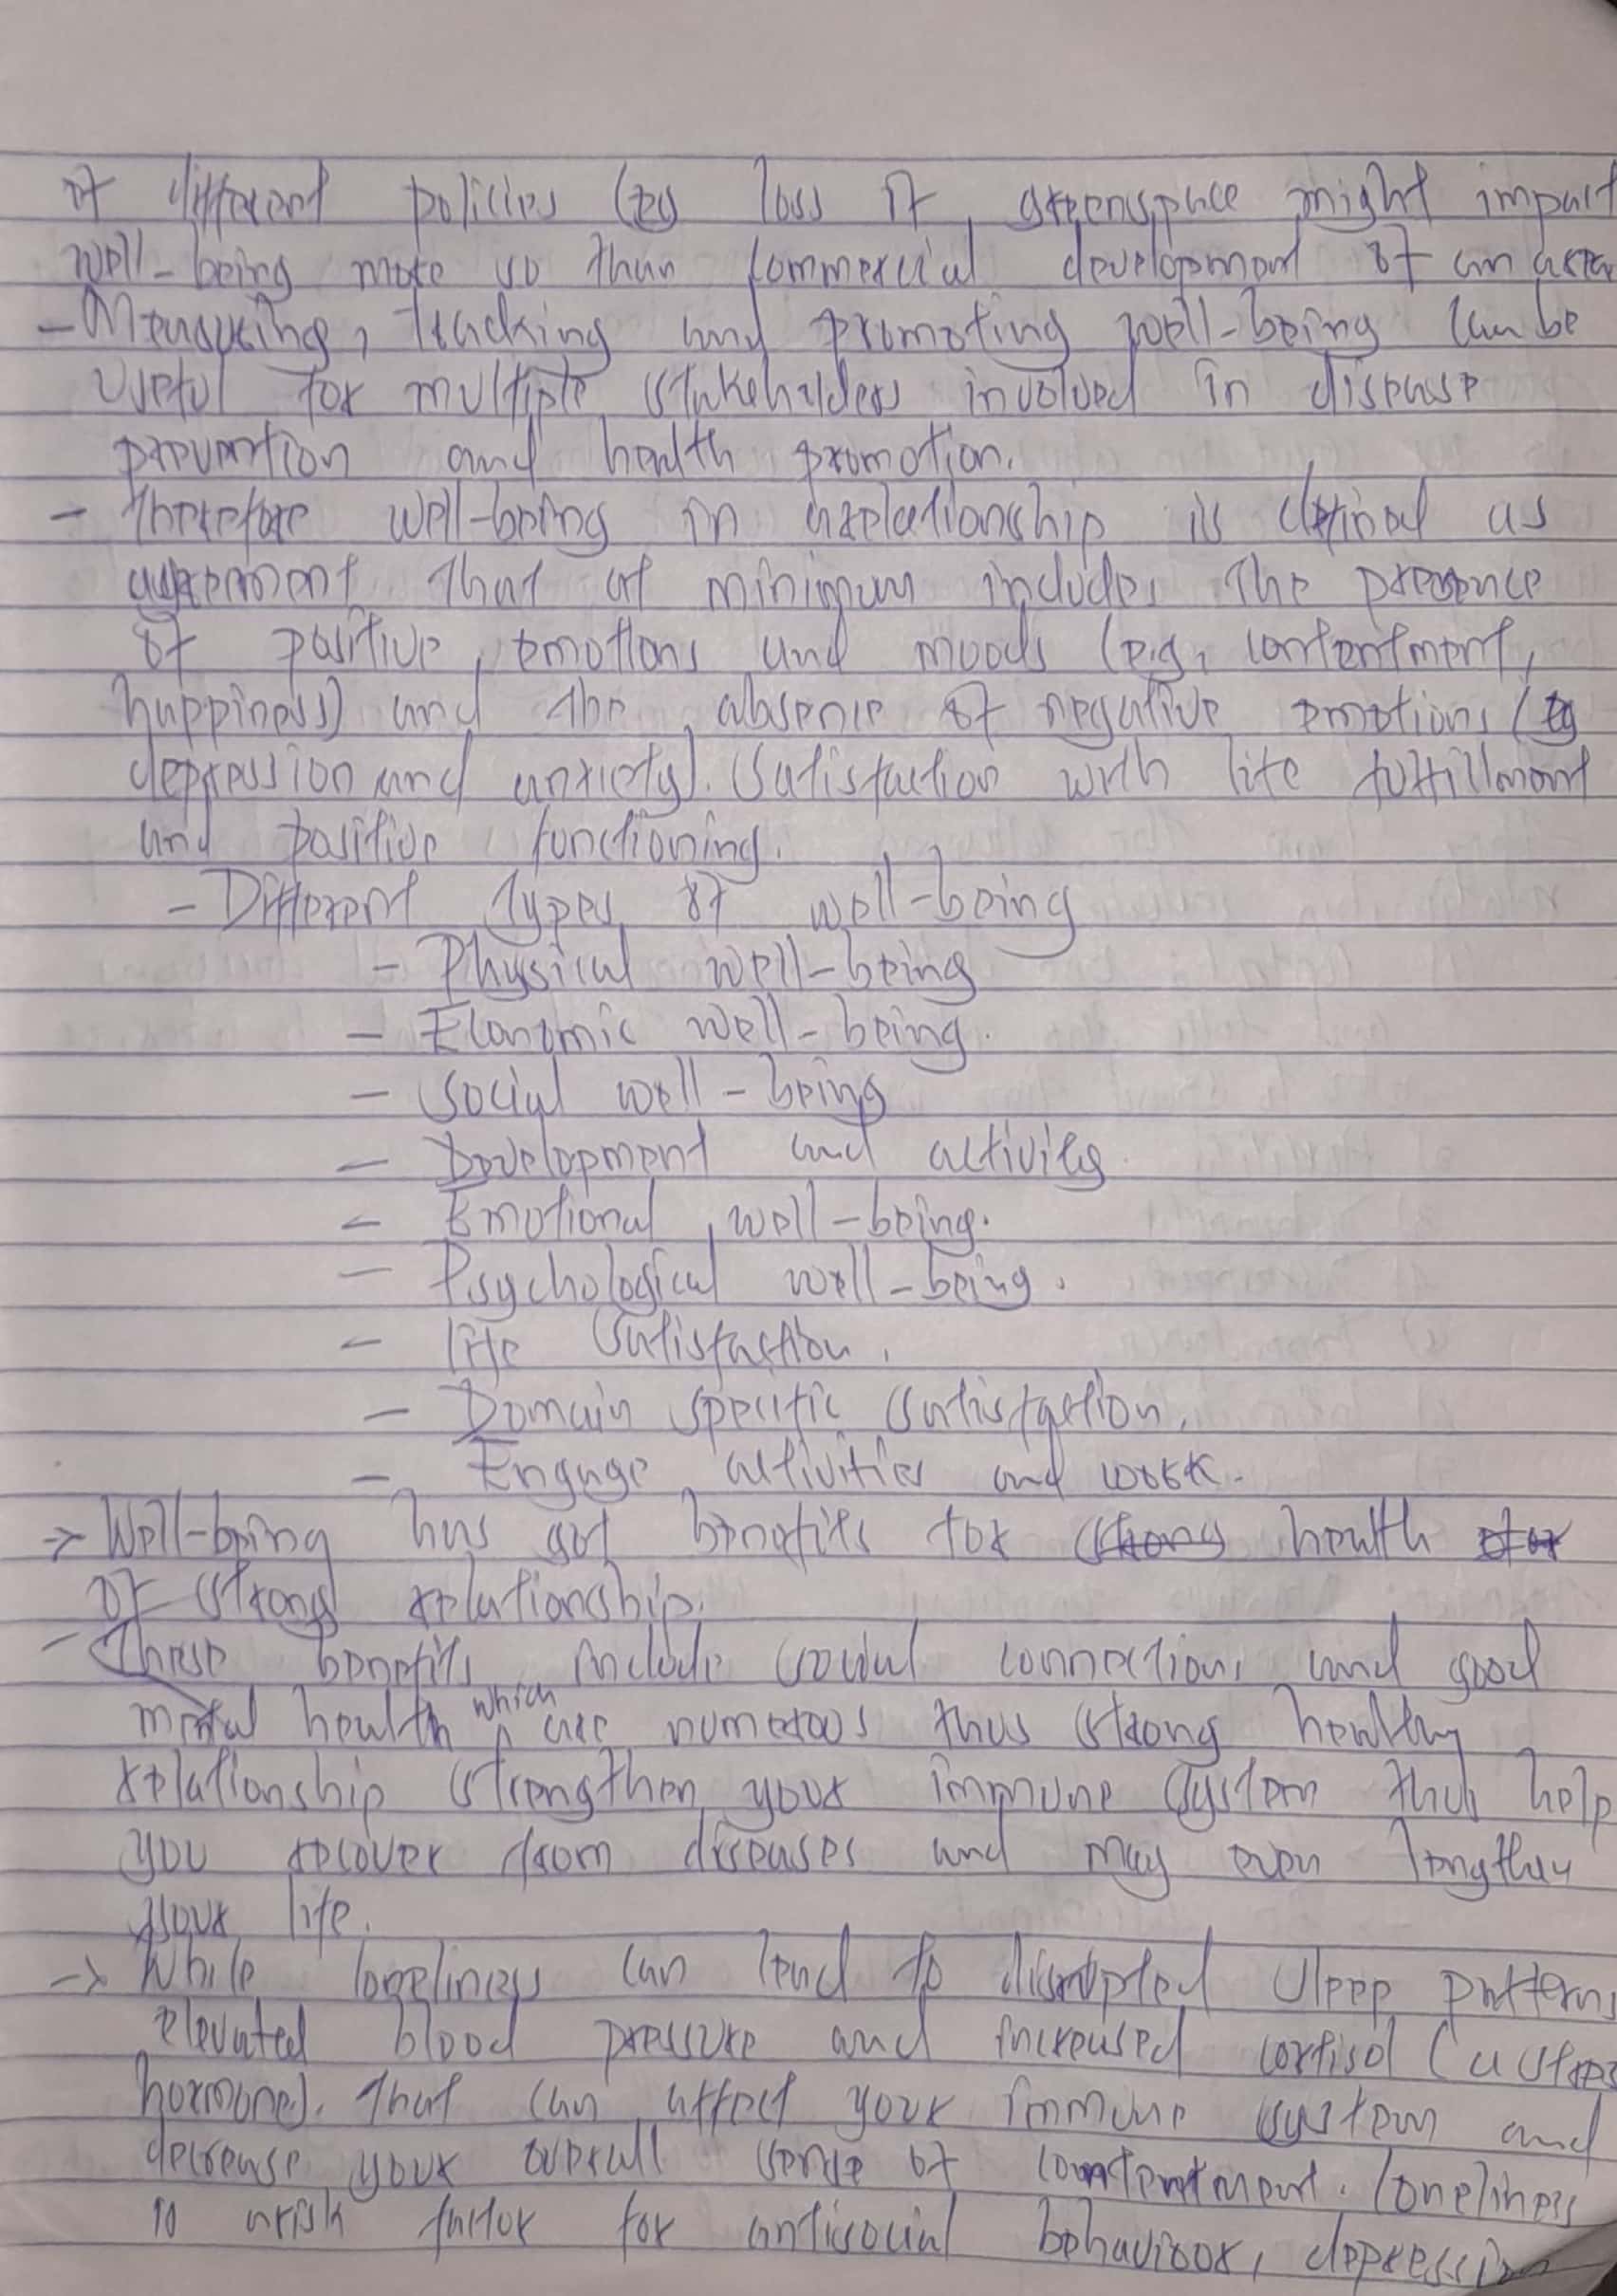 of different policies (eg loss of greenspace might impact
well-being more so than commercial development of an area
- Measuring, tracking and promoting well-being can be
useful for multiple stakeholders involved in disease
prevention and health promotion.
- Therefore well-being in a relationship is defined as
agreement that at minimum includes the presence
of positive emotions and moods (e.g, contentment,
happiness) and the absence of negative emotions (eg
depression and anxiety). Satisfaction with life fulfillment
and positive functioning.
- Different types of well-being
- Physical well-being
- Economic well-being.
- Social well-being
- Development and activity
- Emotional well-being.
- Psychological well-being.
- life satisfaction.
- Domain specific satisfaction.
- Engage activities and work.
→ Well-being has got benefits for strong health
of strong relationship.
- These benefits include social connections and good
mental health which are numerous thus strong healthy
relationship strengthen your immune system thus help
you recover from diseases and may even lengthen
your life.
→ While loneliness can lead to disrupted sleep patterns
elevated blood pressure and increased cortisol (a stress
hormone). That can affect your immune system and
decrease your overall sense of contentment. Loneliness
is a risk factor for antisocial behaviour, depression